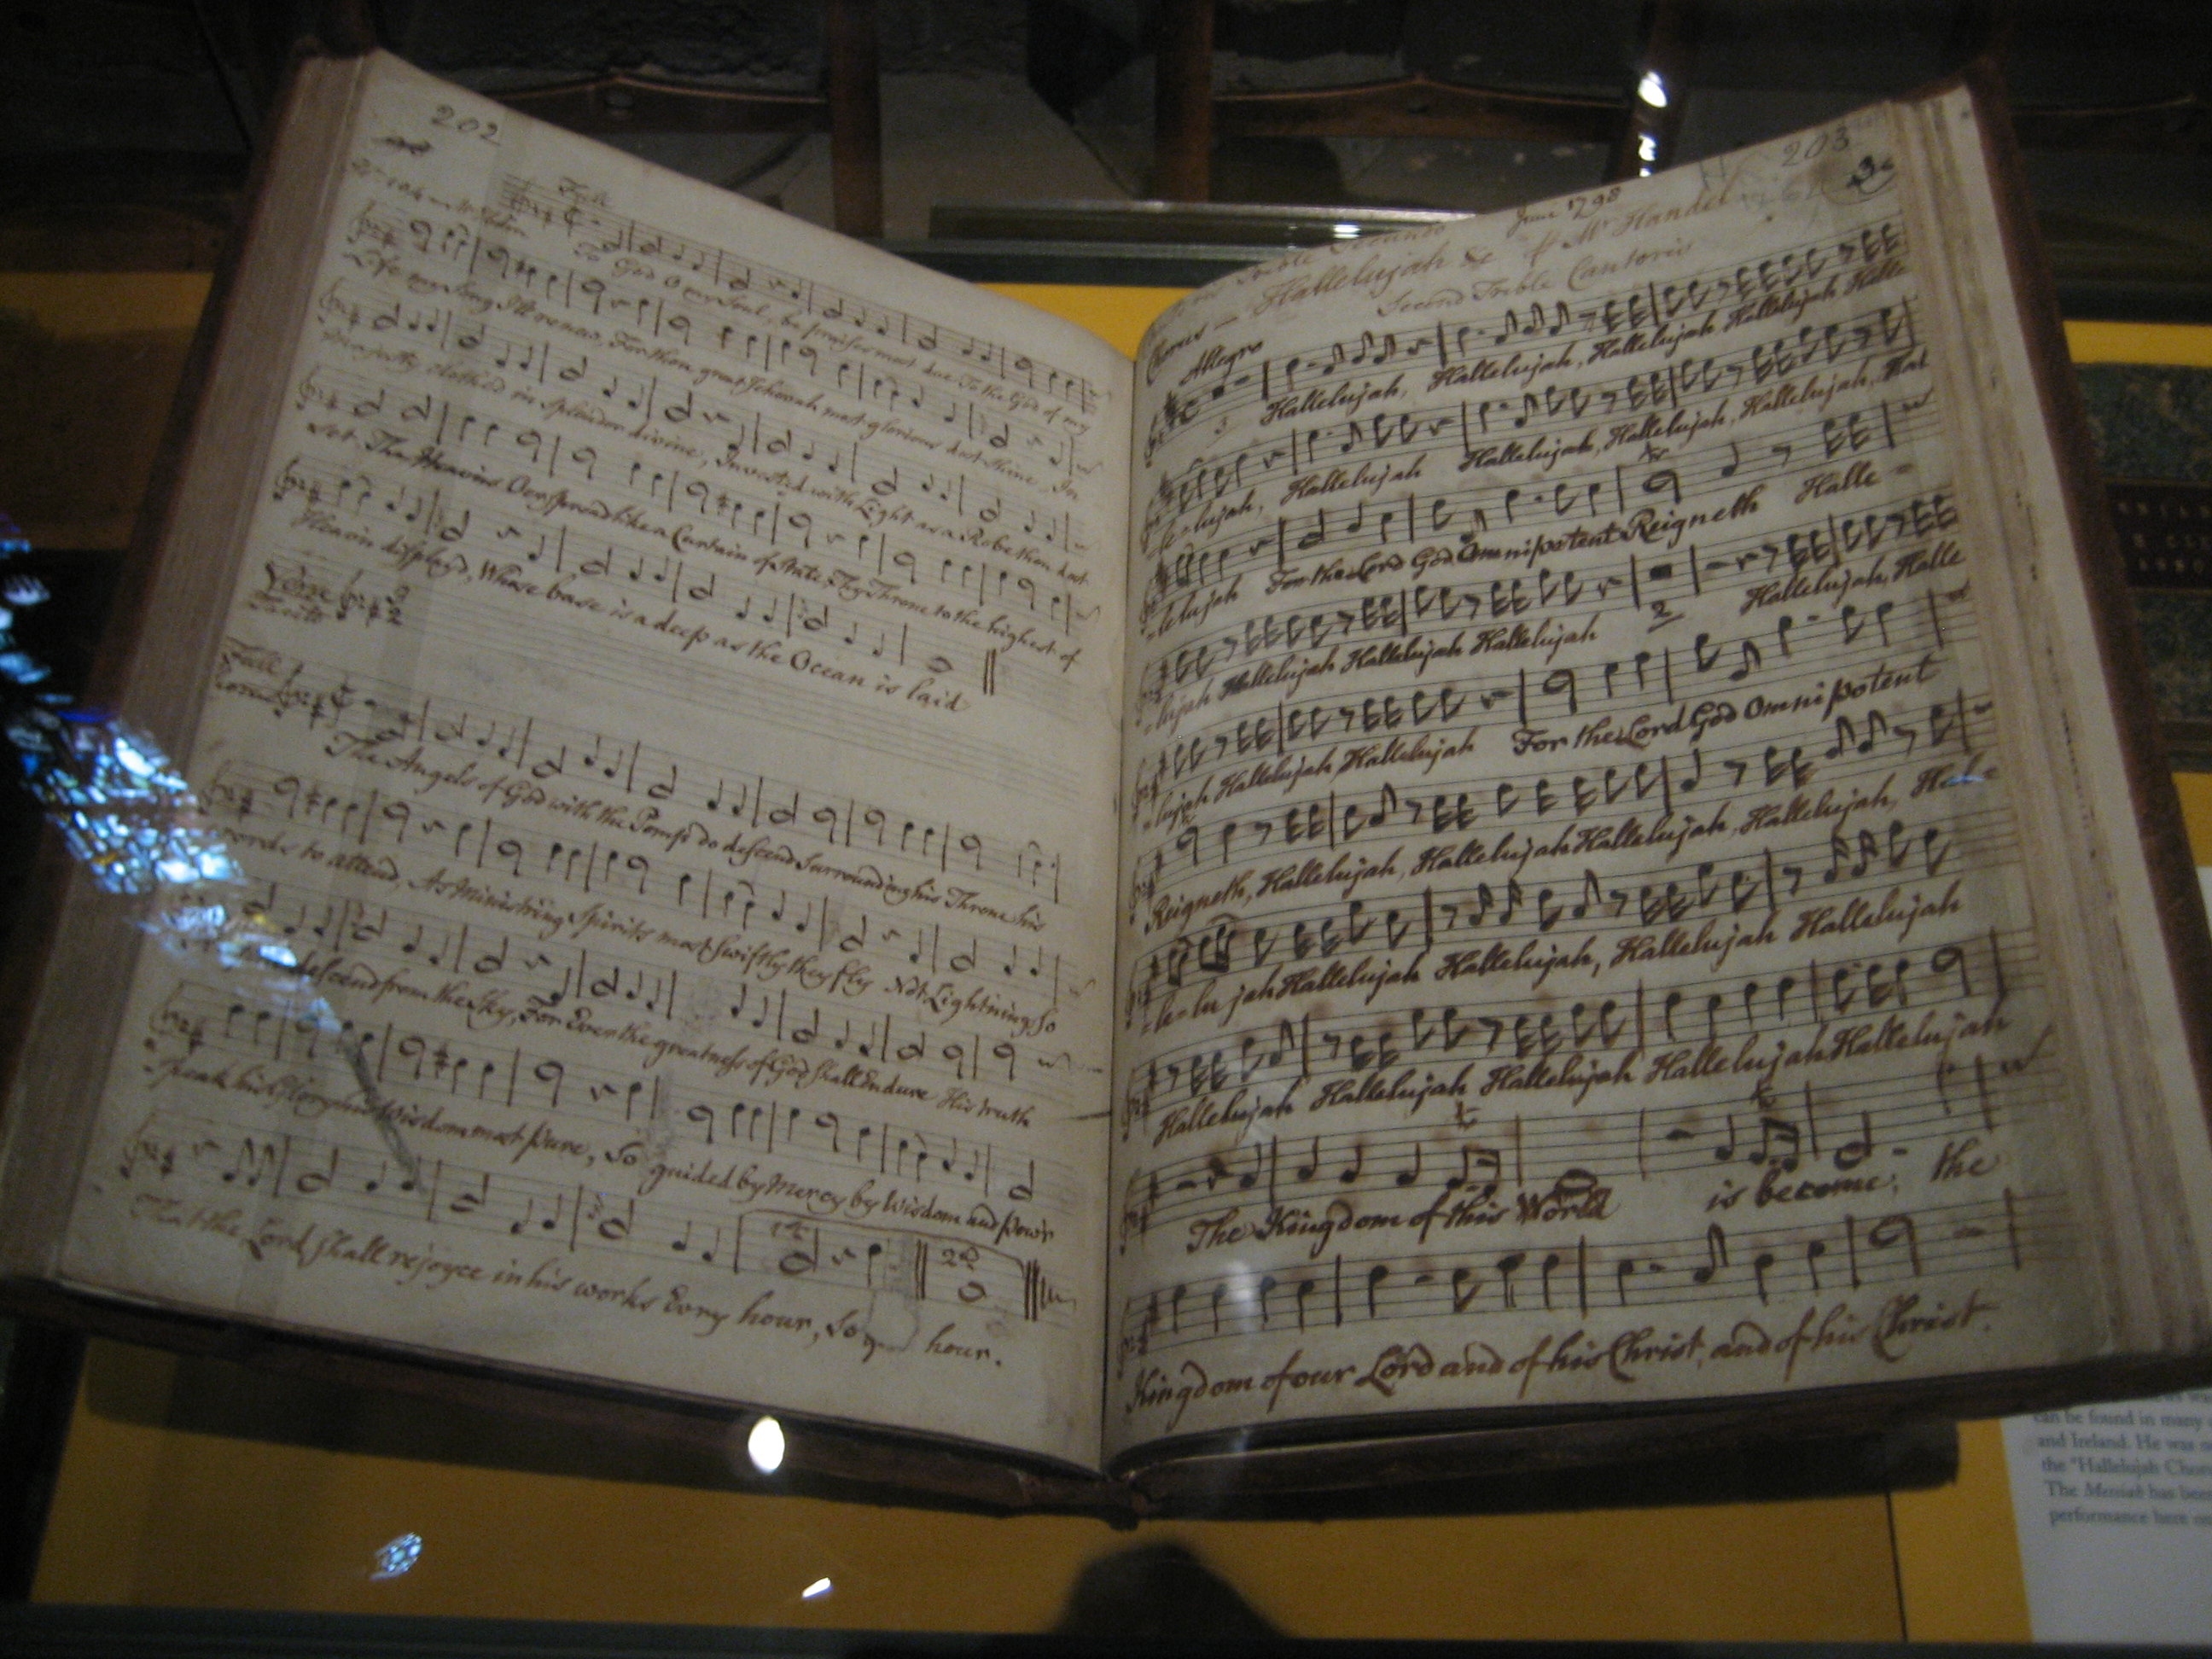 202
Full
To God O my Soul, be praises most due To the God of my
Life my Song I'll renew, For thou great Jehovah most glorious dost Shine, In
Majesty clothed in Splendor divine, Invested with Light as a Robe thou dost
The Heavins Oerspread like a Curtain of State, Thy Throne to the highest of
Heavin displayd, Whose base is a deep as the Ocean is laid
Full
The Angels of God with the Pomp do descend Surrounding his Throne his
words to attend, As Ministring Spirits most swiftly they fly Not Lightning, so
descend from the Sky, For Ever the greatness of God shall Endure His truth
speak his Glory his Wisdom most Pure, So guided by Mercy by Wisdom and Pow'r
That the Lord shall rejoyce in his works Evry hour, So hour.
1st
2d
203
June 1798
Hallelujah &c Mr Handel
Second Treble Cantoris
Chorus
Allegro
Hallelujah, Hallelujah, Hallelujah Hallelujah Halle
=le=lujah, Hallelujah Hallelujah, Hallelujah, Hallelujah, Hal
=lelujah For the Lord God Omnipotent Reigneth Halle =
tr
=lujah Hallelujah Hallelujah Hallelujah 2 Hallelujah, Halle
=lujah Hallelujah Hallelujah For the Lord God Omnipotent
Reigneth, Hallelujah, Hallelujah Hallelujah, Hallelujah, Hal=
=le=lu jah Hallelujah Hallelujah, Hallelujah Hallelujah
Hallelujah Hallelujah Hallelujah Hallelujah Hallelujah
The Kingdom of this World is become; the
Kingdom of our Lord and of his Christ, and of his Christ.
can be found in many
and Ireland. He was
the "Hallelujah
The Messiah has been
performance here